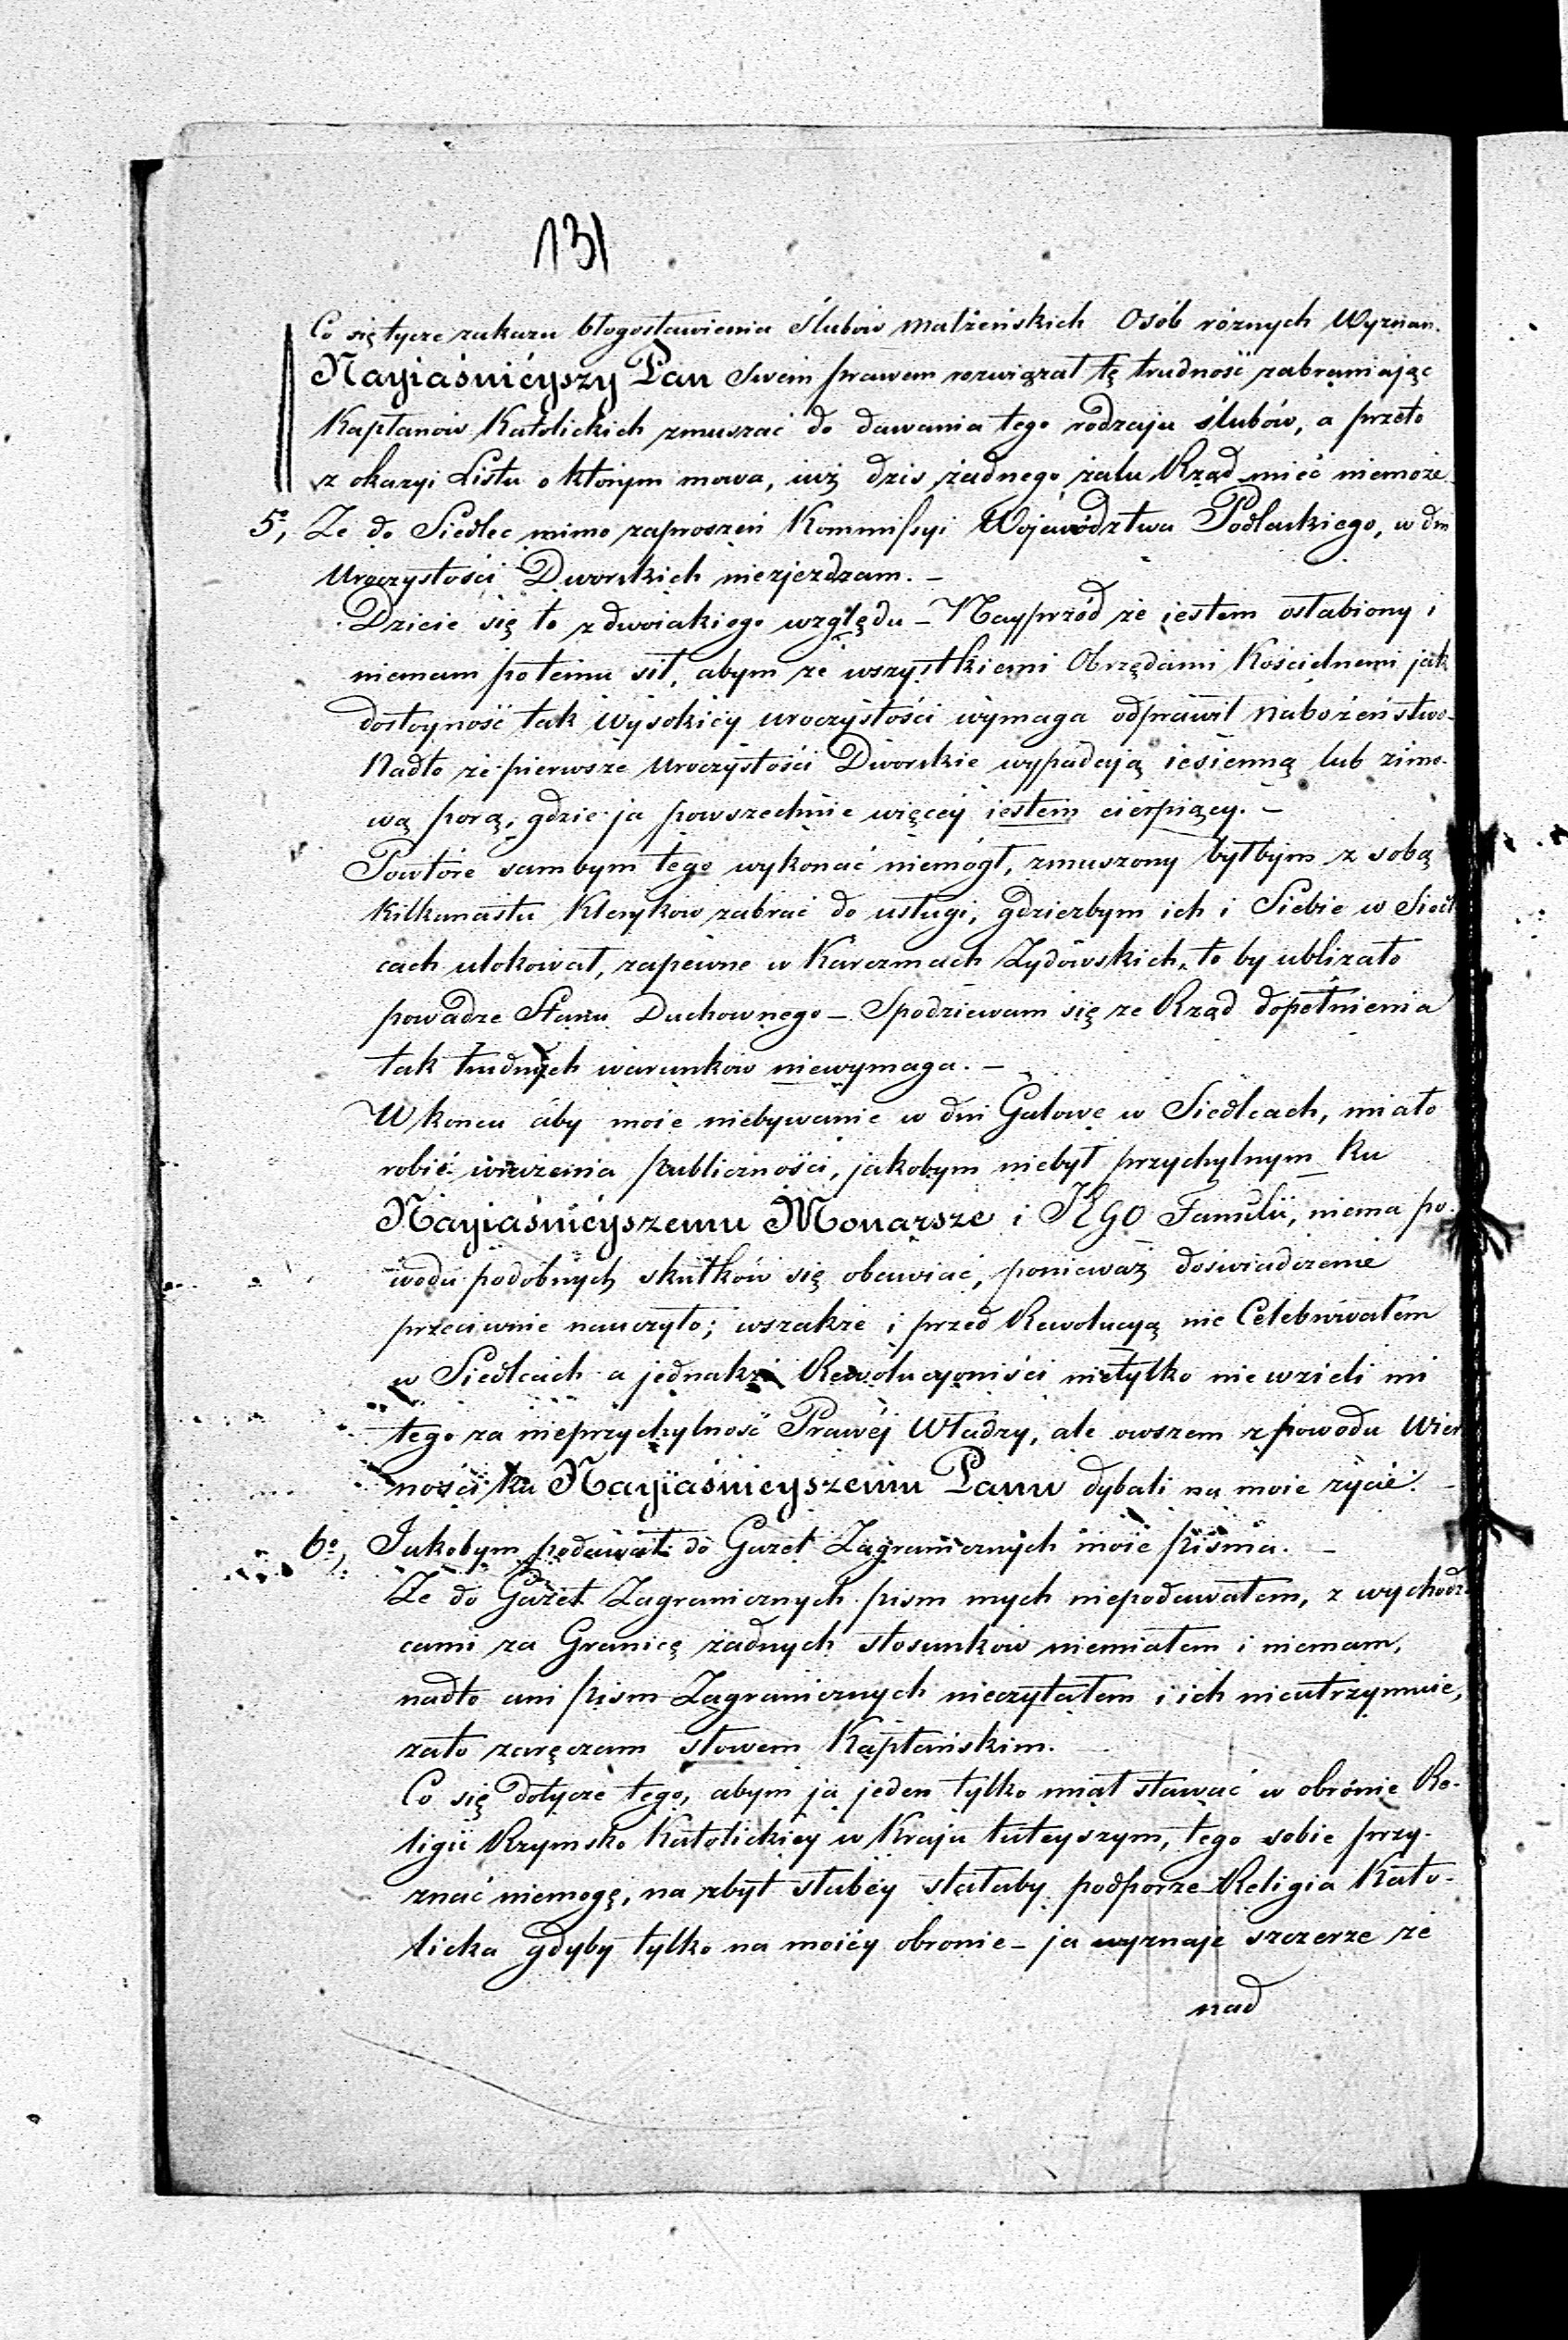 131
Co się tycze zakazu błogosławienia Ślubów Małżeńskich Osób róznych Wyznan.
Nayiaśnieyszy Pan Swem prawem rozwiązał tę trudność zabraniając
Kapłanów Katolickich zmuszać do dawania tego rodzaju ślubów, a przeto
z okazyi Listu o którym mowa, iuż dzis żadnego żalu Rząd mieć niemoże.
5o, Ze do Siedlec mimo zaproszeń Kommissyi Województwa Podlaskiego, w dni
Uroczystości Dworskich niezjezdzam. –
Dzieie się to z dwoiakiego względu – Nayprzód że iestem osłabiony i
niemam potemu sił, abym ze wszystkiemi Obrzędami Kościelnemi jak
dostoyność tak wysokiéy uroczystości wymaga odprawił nabożeństwo –
Nadto że pierwsze Uroczystości Dworskie wypadają iesienną lub zimo-
wą porą, gdzie ja powszechnie więcéy iestem cierpiący. –
Powtóre sam bym tego wykonać niemógł, zmuszony byłbym z sobą
Kilkunastu Klerykow zabrać do usługi, gdzieżbym ich i Siebie w Siedl
cach ulokował, zapewne w Karczmach Zydówskich, to by ubliżało
powadze Stanu Duchownego – Spodziewam się że Rząd dopełnienia
tak trudnych warunków niewymaga. –
W koncu aby moie niebywanie w dni Galowe w Siedlcach, miało
robić wrażenia Publiczności, jakobym niebył przychylnym ku
Nayiaśnieyszemu Monarsze i JEGO Familii, niema po-
wodu podobnych skutków się obawiać, ponieważ doświadczenie
przeciwnie nauczyło; wszakże i przed Rewolucyą nie Celebrowałem
w Siedlcach a jednakże Rewolucyoniści nietylko nie wzieli mi
tego za nieprzychylność Prawéj Władzy, ale owszem z powodu Wier
ności ku Nayiaśnieyszemu Panu dybali na moie życie. –
6o, Jakobym podawał do Gazet Zagranicznych moie pisma. –
Ze do Gazet Zagranicznych pism mych niepodawałem, z wychodź
cami za Granicę żadnych stosunków niemiałem i niemam,
nadto ani pism Zagranicznych nieczytałem i ich nieutrzymuie,
zato zaręczam słowem Kapłańskim.
Co się dotycze tego, abym ja jeden tylko miał stawać w obronie Re-
ligii Rzymsko Katolickiey w Kraju tuteyszym, tego sobie przy-
znać niemogę, na zbyt słabéy stałaby podporze Religia Kato-
licka gdyby tylko na moiéy obronie – ja wyznaję szczerze że
nad